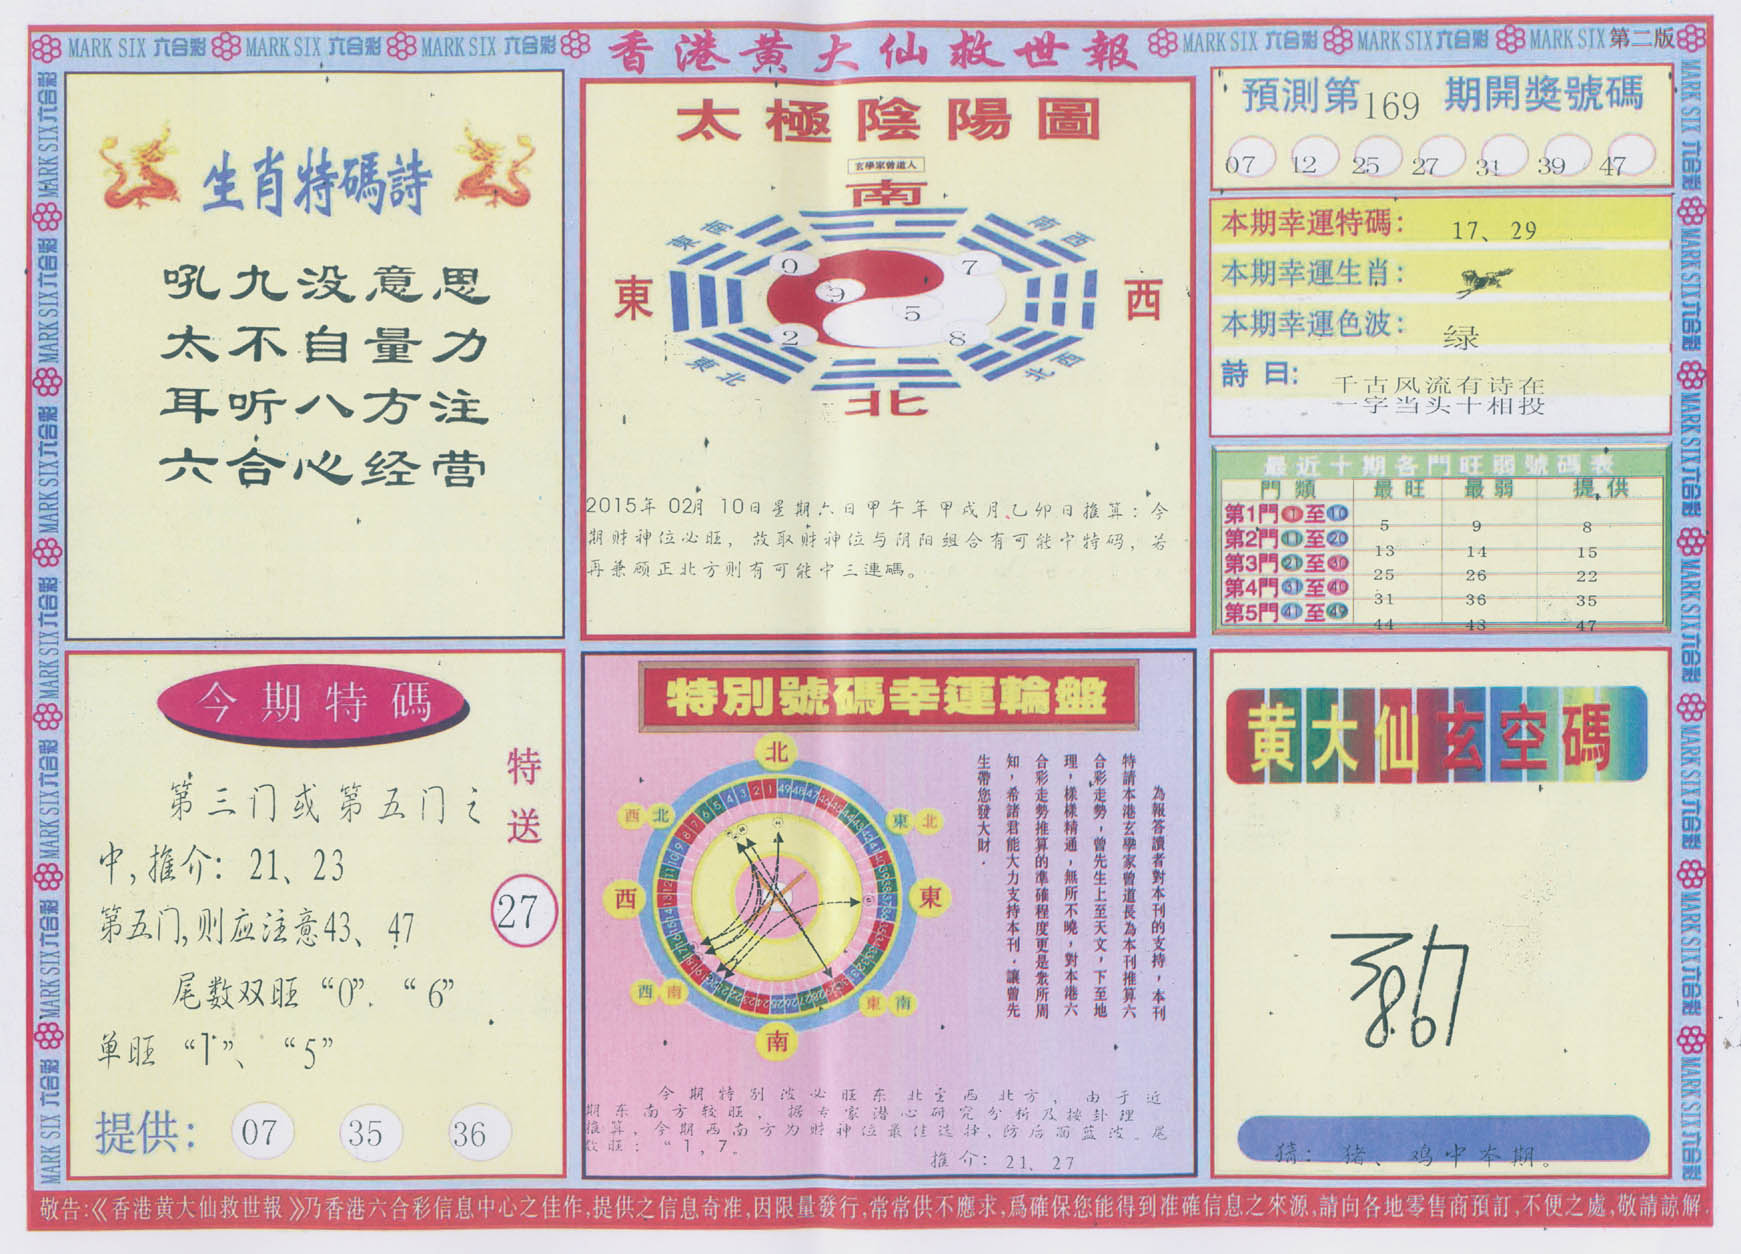 MARK SIX 六合彩 MARK SIX 六合彩 MARK SIX 六合彩
香港黄大仙救世報
MARK SIX 六合彩 MARK SIX 六合彩 MARK SIX 第二版
生肖特碼詩
吼九没意思
太不自量力
耳听八方注
六合心经营
太極陰陽圖
玄學家曾道人
南
東南
南西
0
7
東
9
5
西
2
8
東北
北西
北
2015年 02月 10日星期六日甲午年甲戌月,乙卯日推算:今
期财神位必旺，故取财神位与阴阳组合有可能中特码，若
再兼顾正北方则有可能中三連碼。
預測第169期開獎號碼
07 12 25 27 31 39 47
本期幸運特碼: 17、29
本期幸運生肖:
本期幸運色波: 绿
詩曰: 千古风流有诗在
一字当头十相投
最近十期各門旺弱號碼表
門類 最旺 最弱 提供
第1門 1 至 10 5 9 8
第2門 11 至 20 13 14 15
第3門 21 至 30 25 26 22
第4門 31 至 40 31 36 35
第5門 41 至 49 44 43 47
今期特碼
第三门或第五门之
中,推介: 21、23
第五门,则应注意43、47
尾数双旺“0”.“6”
单旺“1”、“5”
特送
27
提供: 07 35 36
特別號碼幸運輪盤
北
西北
東北
西
東
西南
東南
南
為報答讀者對本刊的支持，本刊
特請本港玄學家曾道長為本刊推算六
合彩走勢，曾先生上至天文，下至地
理，樣樣精通，無所不曉，對本港六
合彩走勢推算的準確程度更是衆所周
知，希諸君能大力支持本刊．讓曾先
生帶您發大財．
今期特别波必旺东北至西北方，由于近
期东南方较旺，据专家潜心研究分析及按卦理
推算，今期西南方为财神位最佳选择、防后面蓝波.尾
数旺：“1,7。
推介: 21、27
黄大仙玄空碼
猜: 猪、鸡中本期。
敬告:《香港黄大仙救世報》乃香港六合彩信息中心之佳作,提供之信息奇准,因限量發行,常常供不應求,爲確保您能得到准確信息之來源,請向各地零售商預訂,不便之處,敬請諒解.